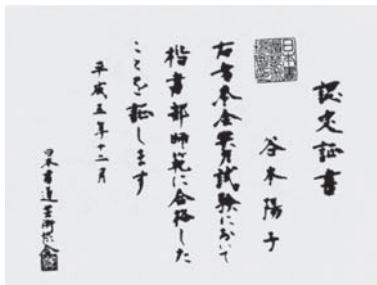 認定証書
谷木陽子
右者本会実力試験において
楷書部師範に合格した
ことを証します
平成五年十二月
日本書道芸術協会